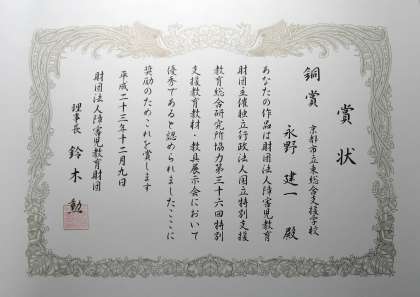 賞状
銅賞
京都市立東総合支援学校
永野建一殿
あなたの作品は財団法人障害児教育
財団主催独立行政法人国立特別支援
教育総合研究所協力第三十六回特別
支援教育教材・教具展示会において
優秀であると認められましたここに
奨励のためこれを賞します
平成二十三年十二月九日
財団法人障害児教育財団
理事長 鈴木勲